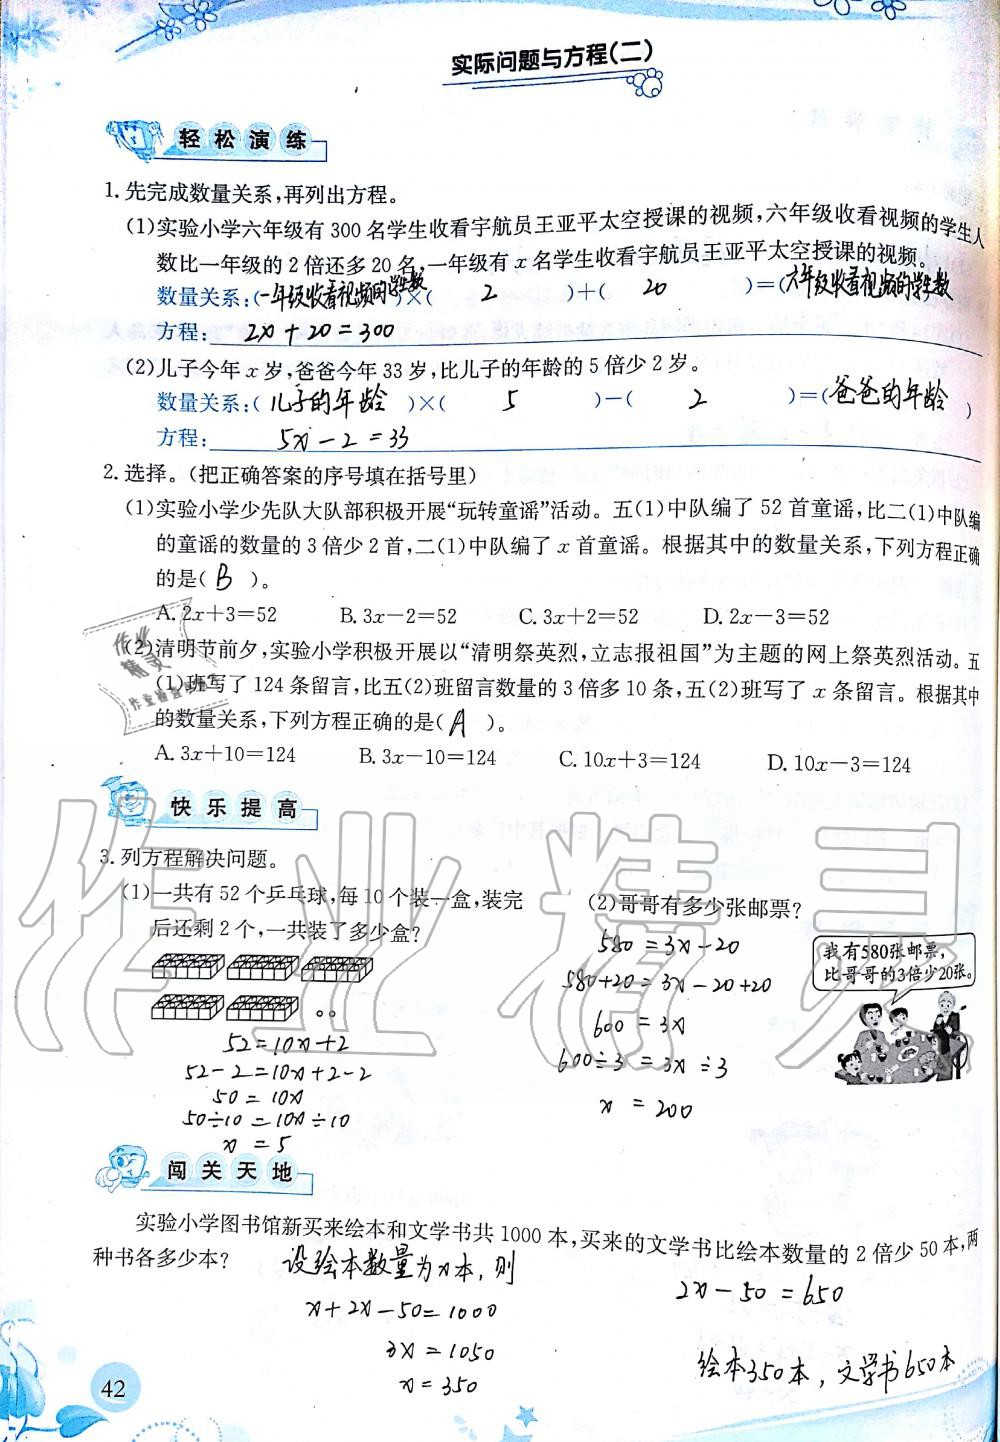 实际问题与方程(二)
轻松演练
1.先完成数量关系,再列出方程。
(1)实验小学六年级有300名学生收看宇航员王亚平太空授课的视频,六年级收看视频的学生人
数比一年级的2倍还多20名,一年级有x名学生收看宇航员王亚平太空授课的视频。
数量关系:(一年级收看视频的学生数)×( 2 )+( 20 )=(六年级收看视频的学生数
方程: 2x+20=300
(2)儿子今年x岁,爸爸今年33岁,比儿子的年龄的5倍少2岁。
数量关系:(儿子的年龄)×( 5 )-( 2 )=(爸爸的年龄)
方程: 5x-2=33
2.选择。(把正确答案的序号填在括号里)
(1)实验小学少先队大队部积极开展“玩转童谣”活动。五(1)中队编了52首童谣,比二(1)中队编
的童谣的数量的3倍少2首,二(1)中队编了x首童谣。根据其中的数量关系,下列方程正确
的是( B )。
A.2x+3=52 B.3x-2=52 C.3x+2=52 D.2x-3=52
(2)清明节前夕,实验小学积极开展以“清明祭英烈,立志报祖国”为主题的网上祭英烈活动。五
(1)班写了124条留言,比五(2)班留言数量的3倍多10条,五(2)班写了x条留言。根据其中
的数量关系,下列方程正确的是( A )。
A.3x+10=124 B.3x-10=124 C.10x+3=124 D.10x-3=124
快乐提高
3.列方程解决问题。
(1)一共有52个乒乓球,每10个装一盒,装完
后还剩2个,一共装了多少盒?
52=10x+2
52-2=10x+2-2
50=10x
50÷10=10x÷10
x=5
(2)哥哥有多少张邮票?
580=3x-20
580+20=3x-20+20
600=3x
600÷3=3x÷3
x=200
我有580张邮票,
比哥哥的3倍少20张。
闯关天地
实验小学图书馆新买来绘本和文学书共1000本,买来的文学书比绘本数量的2倍少50本,两
种书各多少本?
设绘本数量为x本,则
x+2x-50=1000
3x=1050
x=350
2x-50=650
绘本350本,文学书650本
42
作业精灵
作业精灵